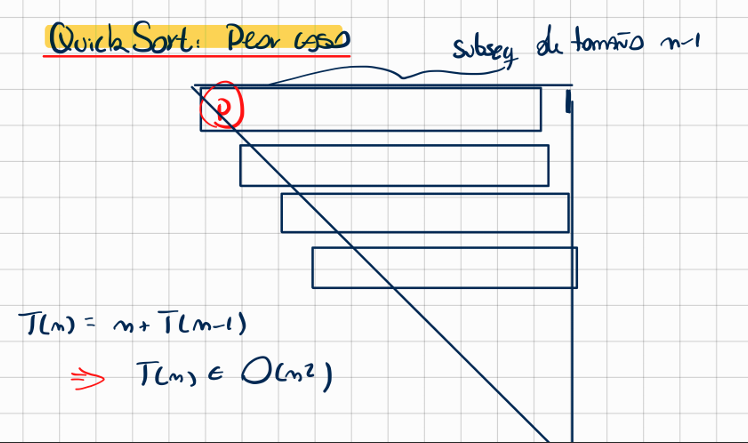 QuickSort: Peor caso
subseq de tamaño n-1
P
T(n) = n + T(n-1)
⇒ T(n) ∈ O(n²)